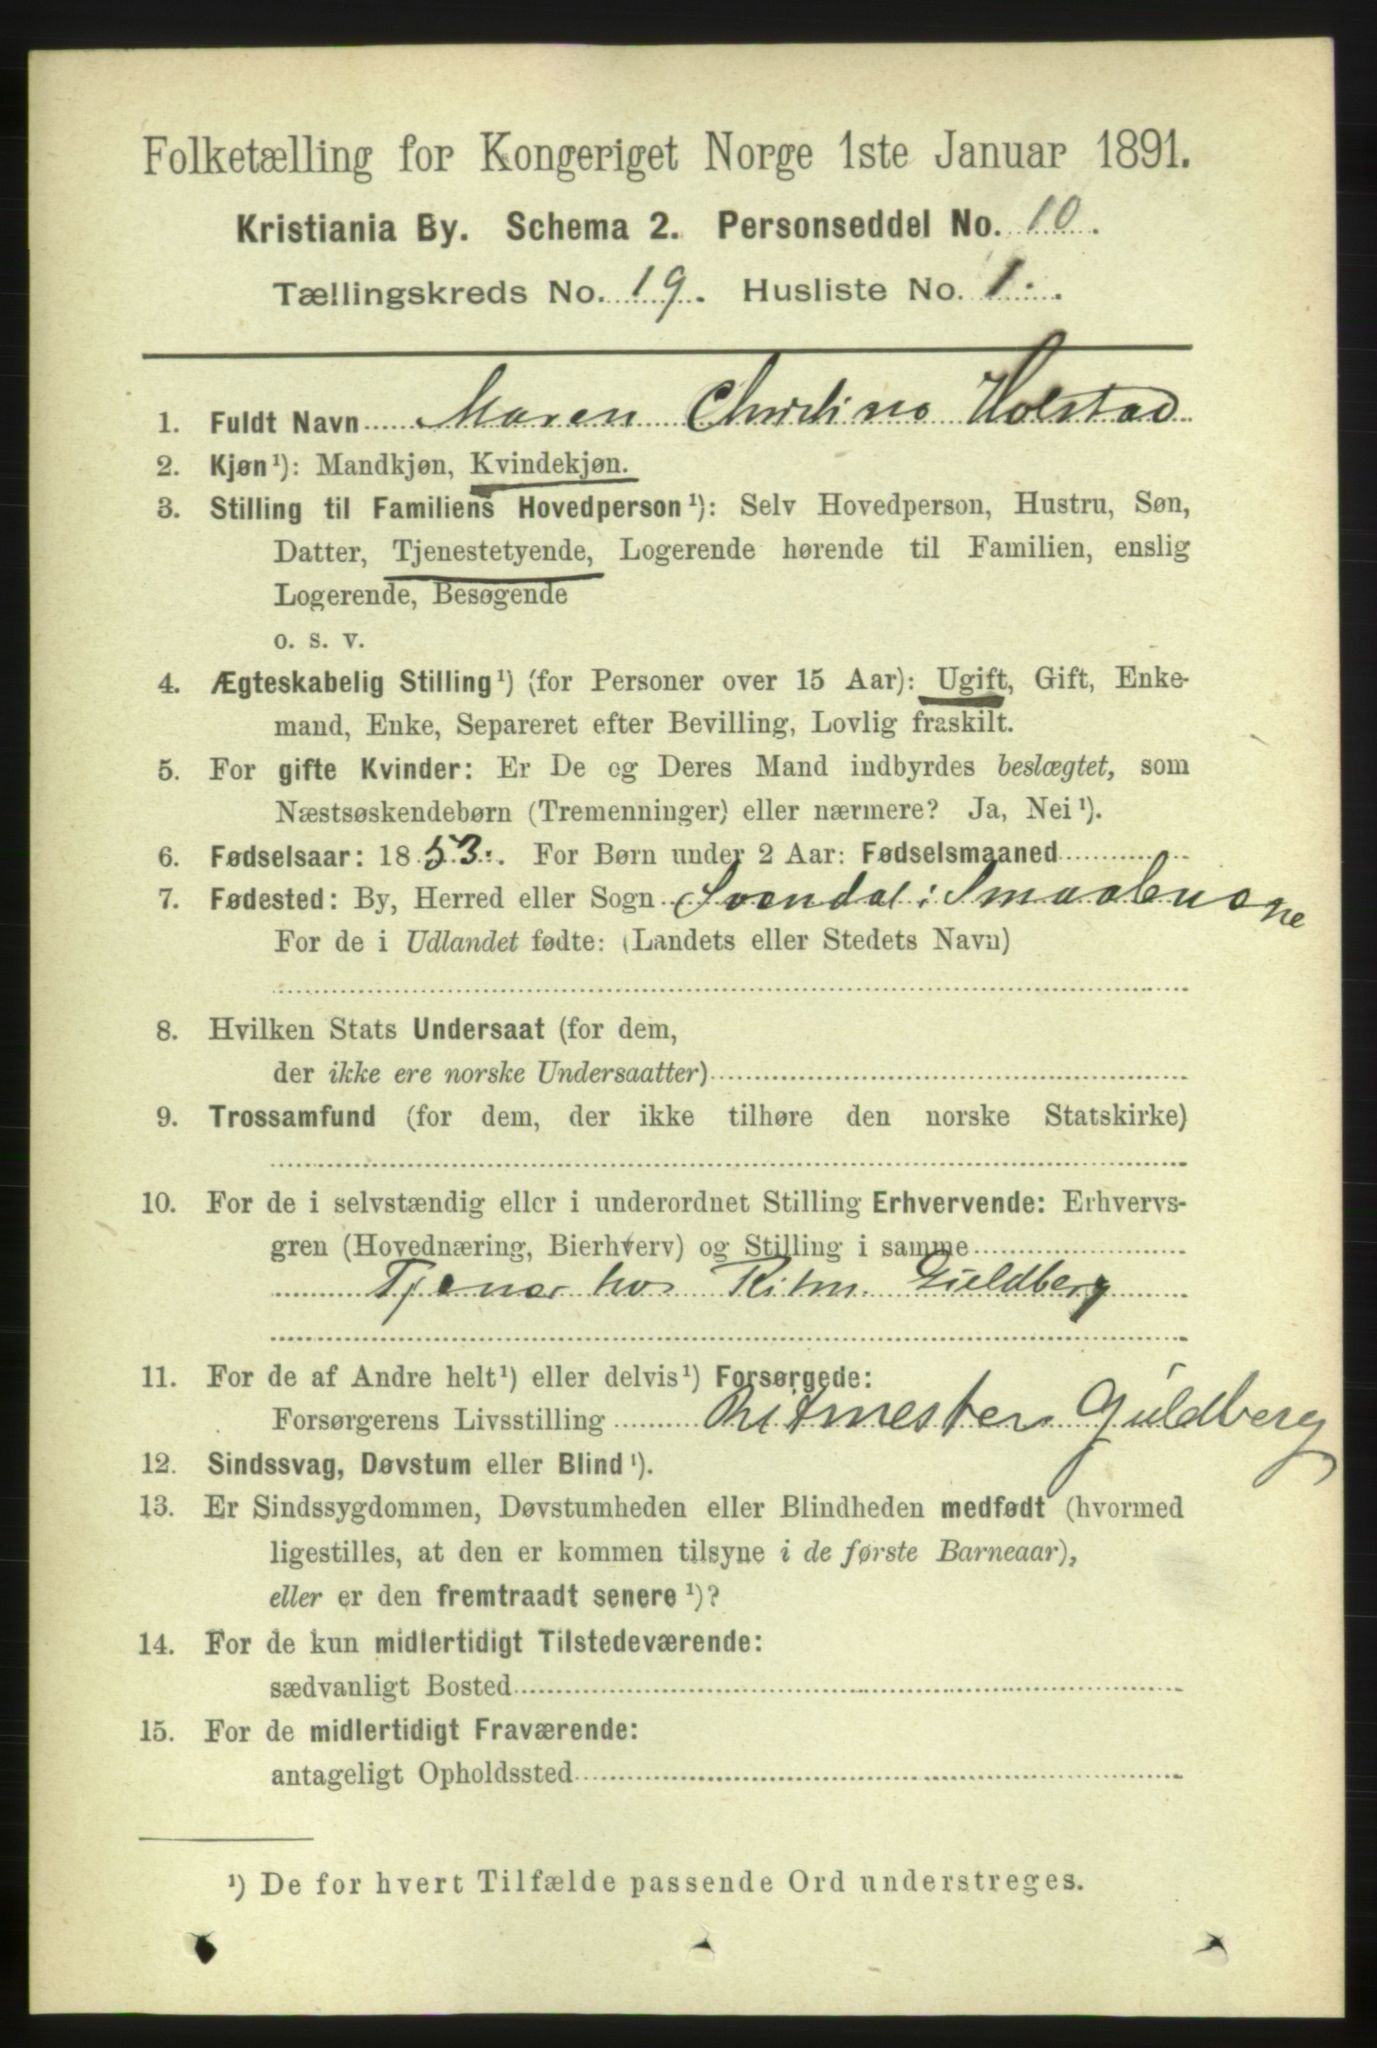 Folketælling for Kongeriget Norge 1ste Januar 1891.
Kristiania By. Schema 2. Personseddel No. 10.
Tællingskreds No. 19. Husliste No. 1.
1. Fuldt Navn Maren Christine Holstad
2. Kjøn¹): Mandkjøn, Kvindekjøn.
3. Stilling til Familiens Hovedperson¹): Selv Hovedperson, Hustru, Søn,
Datter, Tjenestetyende, Logerende hørende til Familien, enslig
Logerende, Besøgende
o. s. v.
4. Ægteskabelig Stilling¹) (for Personer over 15 Aar): Ugift, Gift, Enke-
mand, Enke, Separeret efter Bevilling, Lovlig fraskilt.
5. For gifte Kvinder: Er De og Deres Mand indbyrdes beslægtet, som
Næstsøskendebørn (Tremenninger) eller nærmere? Ja, Nei¹).
6. Fødselsaar: 1853. For Børn under 2 Aar: Fødselsmaaned
7. Fødested: By, Herred eller Sogn Svendal i Smaalenene
For de i Udlandet fødte: (Landets eller Stedets Navn)
8. Hvilken Stats Undersaat (for dem,
der ikke ere norske Undersaatter)
9. Trossamfund (for dem, der ikke tilhøre den norske Statskirke)
10. For de i selvstændig eller i underordnet Stilling Erhvervende: Erhvervs-
gren (Hovednæring, Bierhverv) og Stilling i samme
Tjener hos Ritm. Guldberg
11. For de af Andre helt¹) eller delvis¹) Forsørgede:
Forsørgerens Livsstilling Ritmester Guldberg
12. Sindssvag, Døvstum eller Blind¹).
13. Er Sindssygdommen, Døvstumheden eller Blindheden medfødt (hvormed
ligestilles, at den er kommen tilsyne i de første Barneaar),
eller er den fremtraadt senere¹)?
14. For de kun midlertidigt Tilstedeværende:
sædvanligt Bosted
15. For de midlertidigt Fraværende:
antageligt Opholdssted
¹) De for hvert Tilfælde passende Ord understreges.